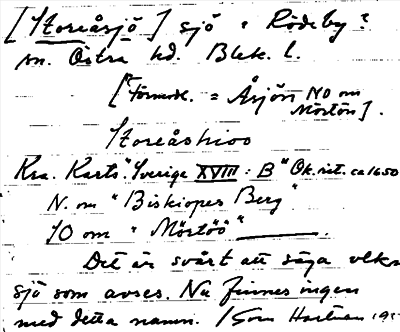 [Storeåsjö] sjö i Rödeby?
sn. Östra hd. Blek. l.
[Förmodl. = Årsjön NO om
Mörtön].
Storeåshioo
Kra. Karts. "Sverige XVIII: B" Ok. rit. ca 1650
N. om "Biskiopes Berg"
SO om "Mörtöö"
Det är svårt att säga vilken
sjö som avses. Nu finnes ingen
med detta namn.